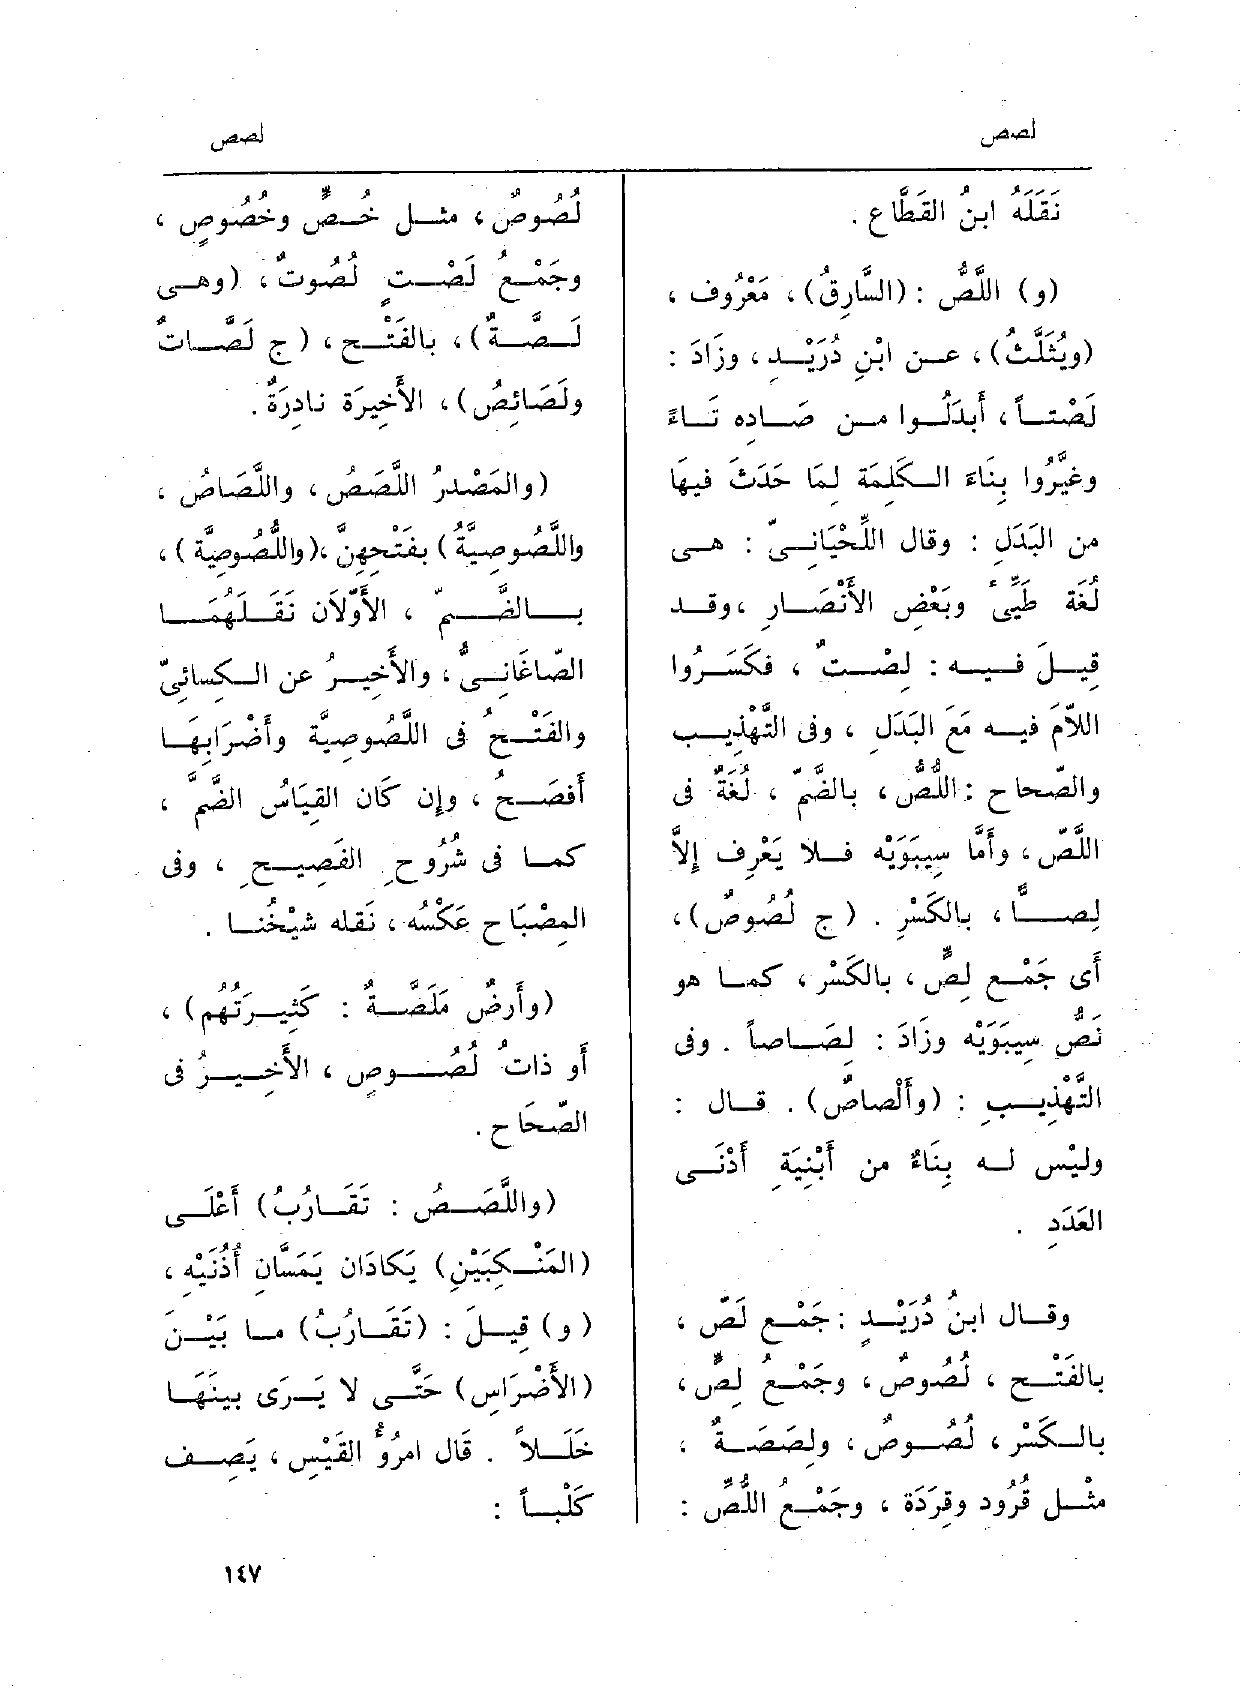 لصص
لصص
نَقَلَهُ ابنُ القَطَّاع .
(و) اللَّصُّ : (السَّارِقُ) ، مَعْرُوف ،
(ويُثَلَّثُ) ، عن ابْنِ دُرَيْدٍ ، وزَادَ :
لَصْتاً ، أَبدَلُوا من صَادِه تَاءً
وغيَّرُوا بِنَاءَ الكَلِمَة لِمَا حَدَثَ فيهَا
من البَدَلِ : وقال اللِّحْيَانِىّ : هى
لُغَة طَيِّىءٍ وبَعْضِ الأَنْصَارِ ، وقد
قِيلَ فيه : لِصْتٌ ، فكَسَرُوا
اللاَّمَ فيه مَعَ البَدَلِ ، وفى التَّهْذِيب
والصّحاح : اللُّصُّ ، بالضَّمّ ، لُغَةٌ فى
اللَّصّ ، وأَمَّا سِيبَوَيْه فلا يَعْرِف إِلاَّ
لِصًّا ، بالكَسْرِ . (ج لُصُوصٌ) ،
أَى جَمْع لِصٍّ ، بالكَسْر ، كما هو
نَصُّ سِيبَوَيْه وزَادَ : لِصَاصاً . وفى
التَّهْذِيبِ : (وأَلْصاصٌ) . قال :
وليْس له بِنَاءٌ من أَبْنِيَةِ أَدْنَى
العَدَدِ .
وقال ابنُ دُرَيْدٍ : جَمْع لَصّ ،
بالفَتْح ، لُصُوصٌ ، وجَمْعُ لِصٍّ ،
بالكَسْر ، لُصُوصٌ ، ولِصَصَةٌ ،
مثْل قُرُود وقِرَدَة ، وجَمْعُ اللُّصِّ :
لُصُوصٌ ، مثل خُصٍّ وخُصُوصٍ ،
وجَمْعُ لَصْتٍ لُصُوتٌ ، (وهى
لَصَّةٌ) ، بالفَتْح ، (ج لَصَّاتٌ
ولَصَائصُ) ، الأَخِيرَة نادِرَةٌ .
(والمَصْدرُ اللَّصَصُ ، واللَّصَاصُ ،
واللَّصُوصِيَّةُ) بفَتْحِهِنَّ ، (واللُّصُوصِيَّة) ،
بالضَّمّ ، الأَوّلاَن نَقَلَهُمَا
الصّاغَانِىُّ ، والأَخِيرُ عن الكِسائىّ
والفَتْحُ فى اللَّصُوصِيَّة وأَضْرَابِهَا
أَفصَحُ ، وإِن كَان القِيَاسُ الضَّمَّ ،
كما فى شُرُوحِ الفَصِيحِ ، وفى
المِصْبَاح عَكْسُه ، نَقله شيْخُنا .
(وأَرضٌ مَلَصَّةٌ : كَثِيرَتُهُم) ،
أَو ذاتُ لُصُوص ، الأَخِيرُ فى
الصّحَاح .
(واللَّصَصُ : تَقَارُبُ) أَعْلَى
(المَنْكِبَيْنِ) يَكادَان يَمَسَّانِ أُذُنَيْه ،
(و) قِيلَ : (تَقَارُبُ) ما بَيْنَ
(الأَضْرَاسِ) حَتَّى لا يَرَى بينَهَا
خَلَلاً . قَال امرُؤُ القَيْسِ ، يَصِف
كَلْباً :
١٤٧